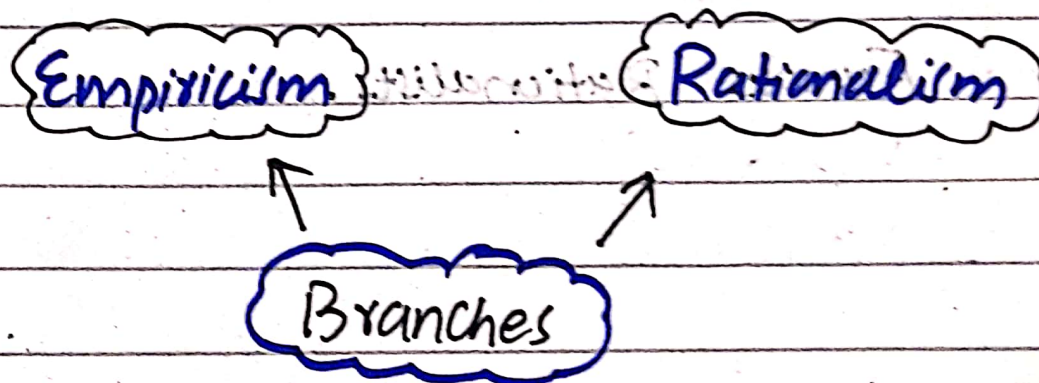 Empiricism Rationalism
Branches